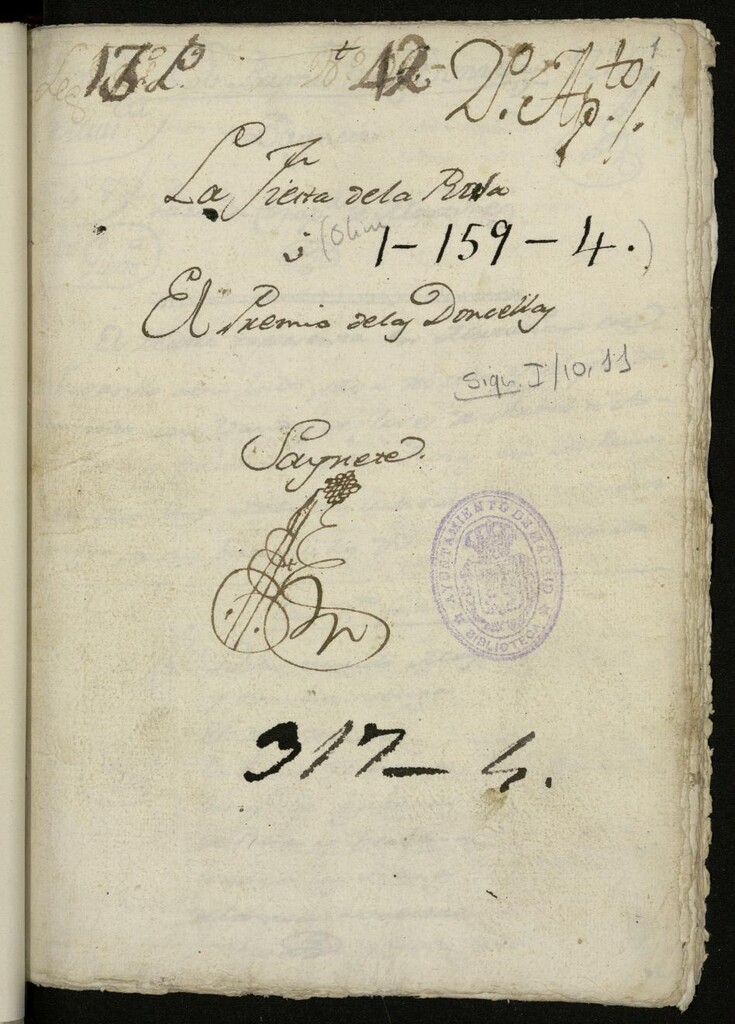 13 42 1
D.ⁿ Ap.ᵗᵒ 1.
La Fiesta dela Rosa
ú (Olim 1-159-4.)
El Premio delas Doncellas
Sign. I/10, 11
Saynete.
AYUNTAMIENTO DE MADRID
BIBLIOTECA
317-4.